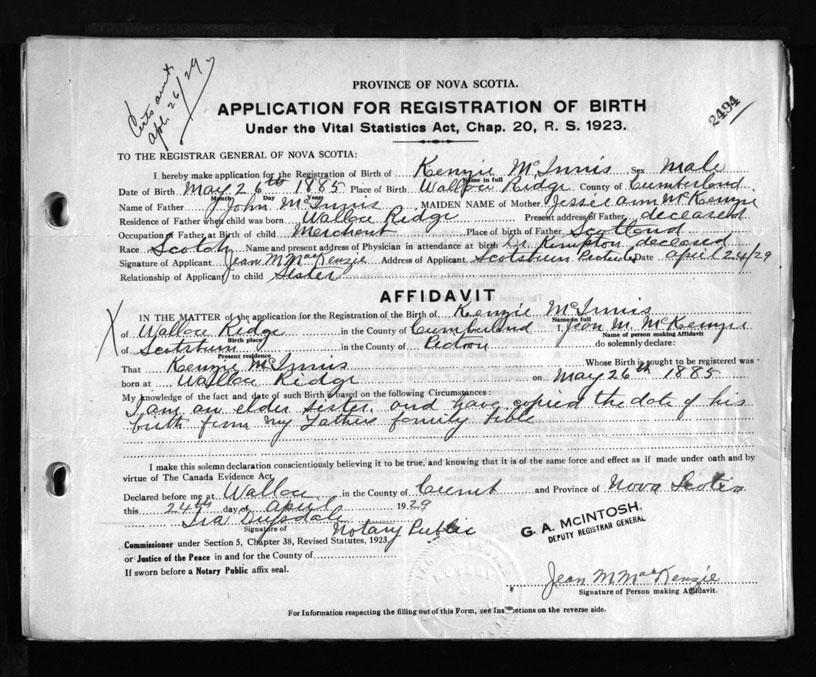 Certs sent
Apl. 26/29
PROVINCE OF NOVA SCOTIA.
2494
APPLICATION FOR REGISTRATION OF BIRTH
Under the Vital Statistics Act, Chap. 20, R. S. 1923.
TO THE REGISTRAR GENERAL OF NOVA SCOTIA:
I hereby make application for the Registration of Birth of Kenzie McInnis Sex Male
Name in full
Date of Birth May 26th 1885 Place of Birth Wallace Ridge County of Cumberland
Month Day Year
Name of Father John McInnis MAIDEN NAME of Mother Jessie Ann McKenzie
Residence of Father when child was born Wallace Ridge Present address of Father deceased
Occupation of Father at Birth of child Merchant Place of birth of Father Scotland
Race Scotch Name and present address of Physician in attendance at birth Dr. Kempton deceased
Signature of Applicant Jean M MacKenzie Address of Applicant Scotsburn Date April 24/29
Relationship of Applicant to child Sister
AFFIDAVIT
IN THE MATTER of the application for the Registration of the Birth of Kenzie McInnis
Name in full
of Wallace Ridge in the County of Cumberland I, Jean M. McKenzie
Birth place Name of person making Affidavit
of Scotsburn in the County of Pictou do solemnly declare:
Present residence
That Kenzie McInnis Whose Birth is sought to be registered was
born at Wallace Ridge on May 26th 1885
My knowledge of the fact and date of such Birth is based on the following Circumstances:
I am an elder sister and have copied the date of his
birth from my Fathers family bible
I make this solemn declaration conscientiously believing it to be true, and knowing that it is of the same force and effect as if made under oath and by
virtue of The Canada Evidence Act.
Declared before me at Wallace in the County of Cumb and Province of Nova Scotia
this 24th day of April 1929
Ira
Signature of Notary Public
Commissioner under Section 5, Chapter 38, Revised Statutes, 1923,
G. A. McINTOSH,
DEPUTY REGISTRAR GENERAL
or Justice of the Peace in and for the County of
If sworn before a Notary Public affix seal.
Jean M MacKenzie
Signature of Person making Affidavit.
For Information respecting the filling out of this Form, see Instructions on the reverse side.